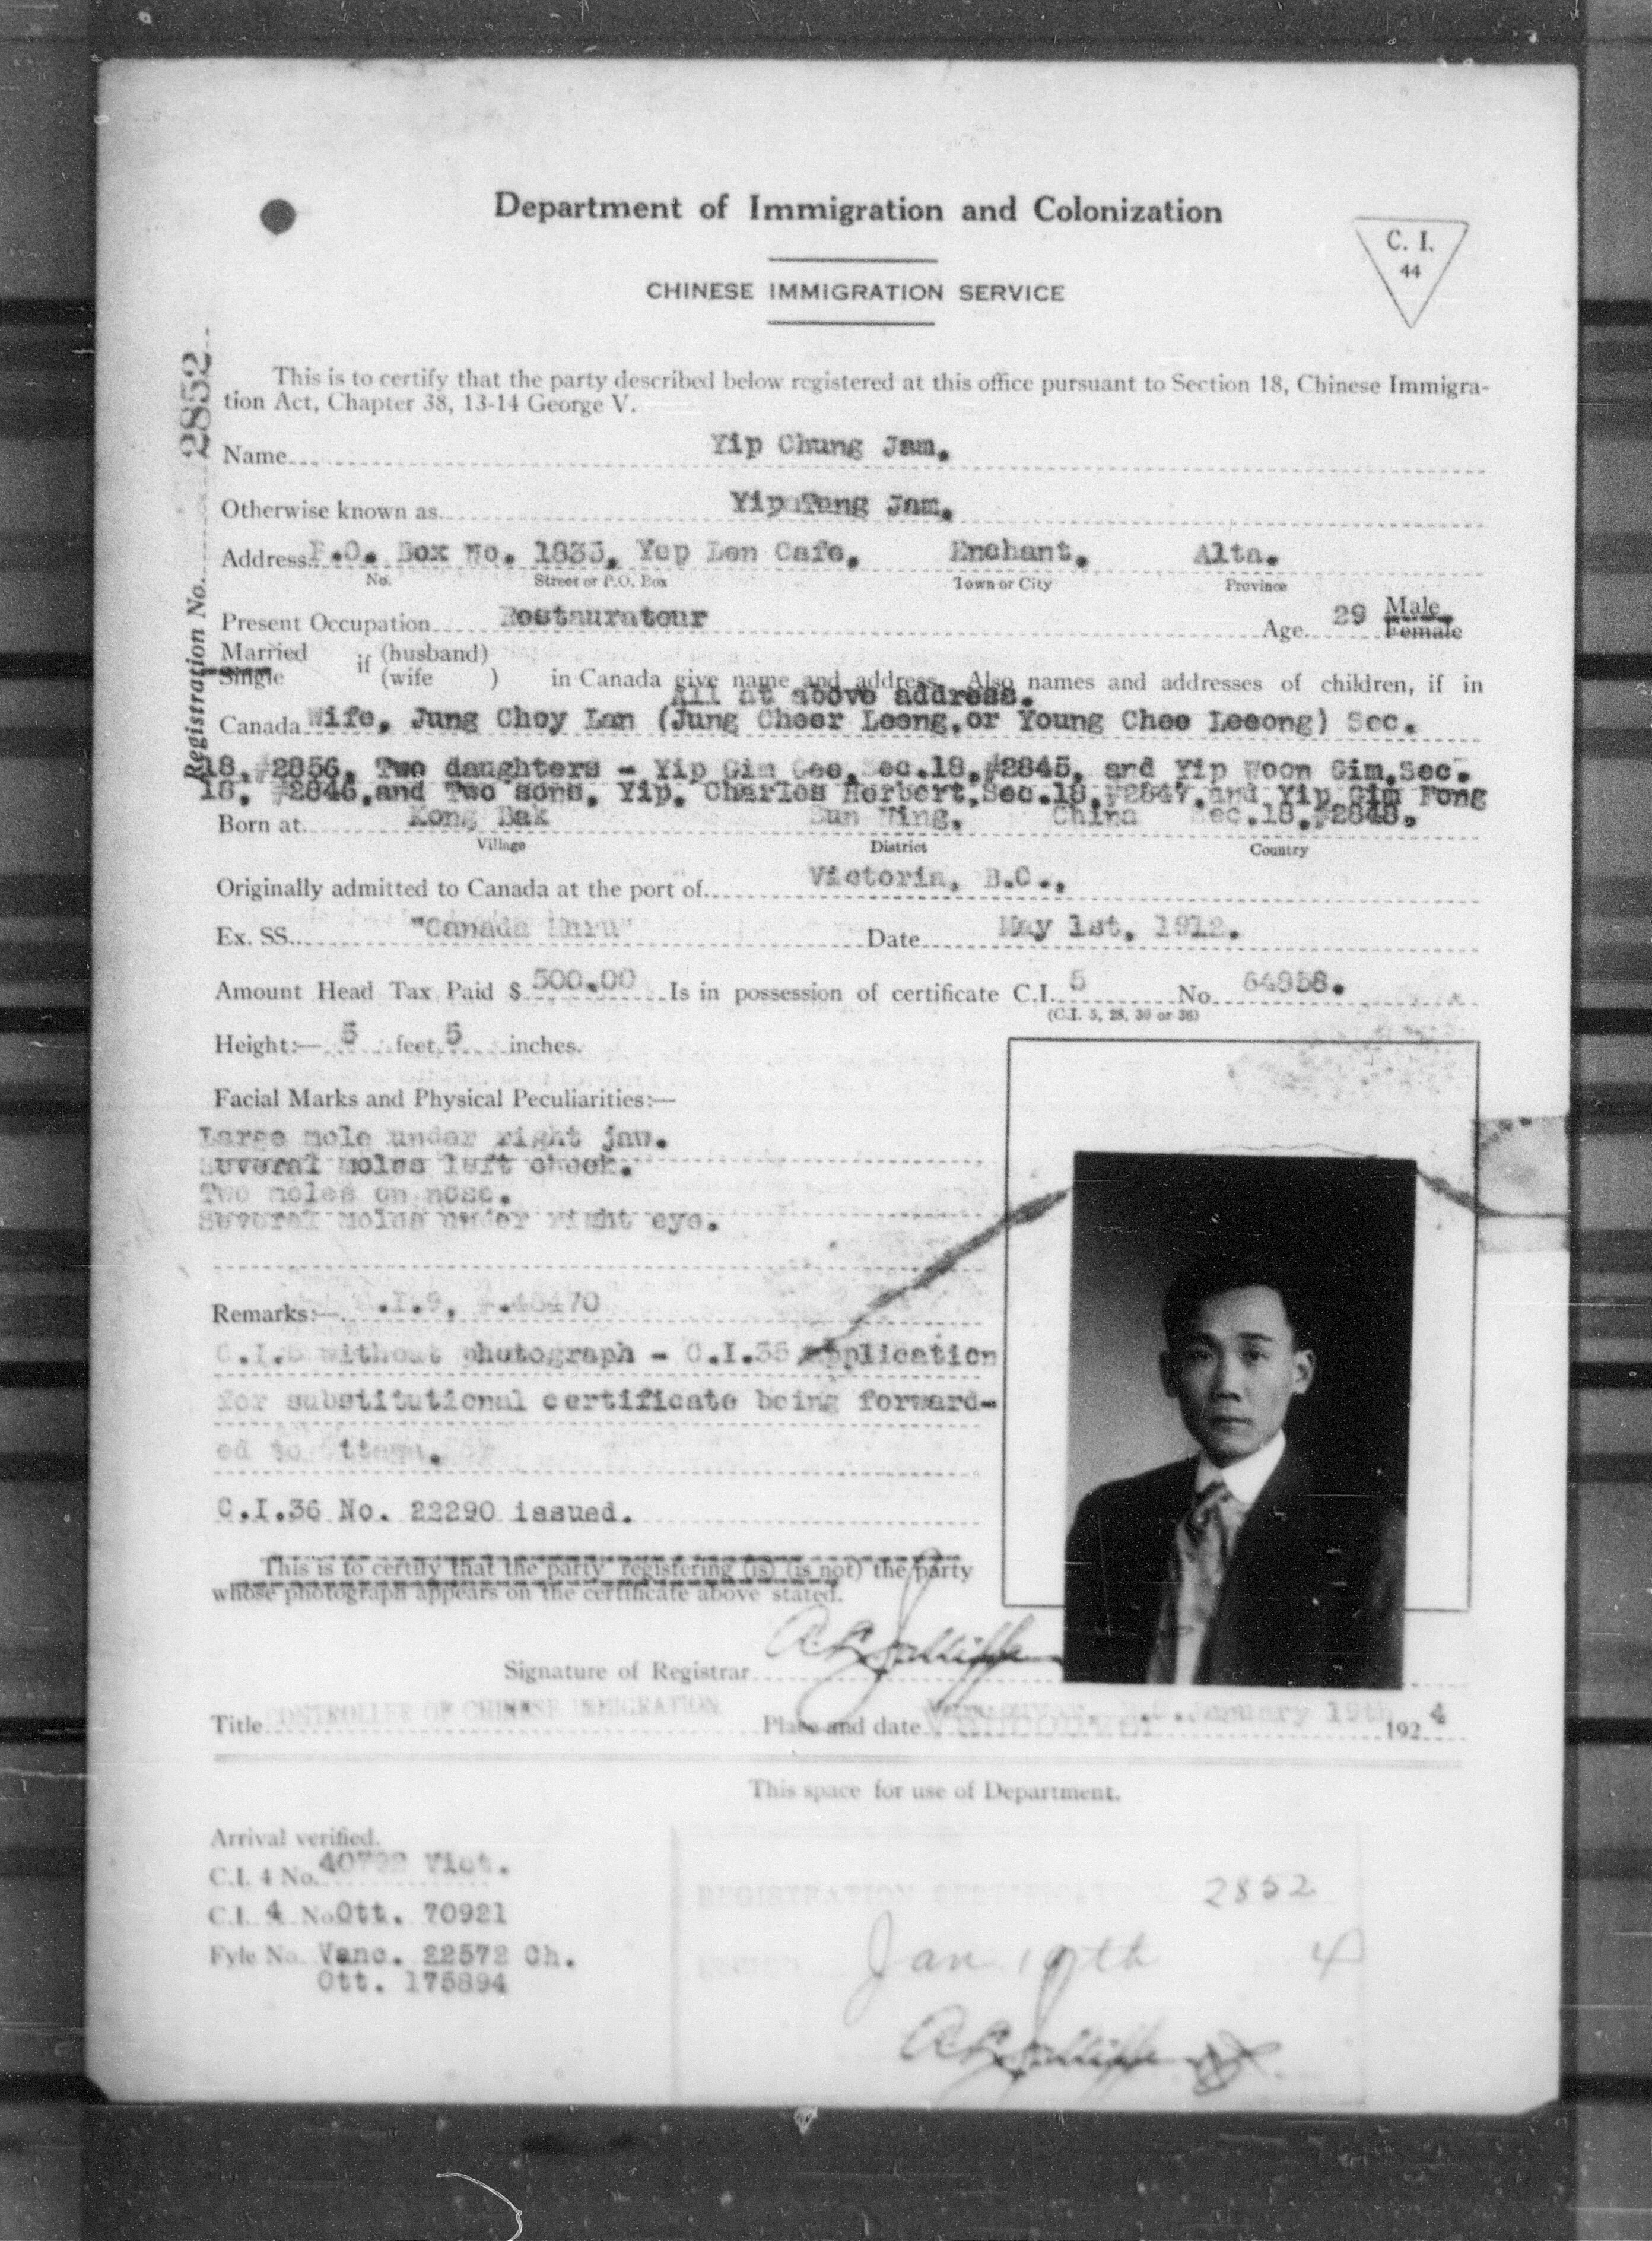 Department of Immigration and Colonization
C. I.
44
CHINESE IMMIGRATION SERVICE
Registration No. 2852
This is to certify that the party described below registered at this office pursuant to Section 18, Chinese Immigra-
tion Act, Chapter 38, 13-14 George V.
Name Yip Chung Jam.
Otherwise known as Yip Jam.
Address P.O. Box No. 1835, Yep Len Cafe, Enchant, Alta.
No. Street or P.O. Box Town or City Province
Present Occupation Restauratour Age 29 Male
Female
Married if (husband)
Single (wife ) in Canada give name and address. Also names and addresses of children, if in
All at above address.
Canada Wife, Jung Choy Lan (Jung Cheer Leong, or Young Chee Leeong) Sec.
18. #2856. Two daughters - Yip Gim Gee, Sec.18.#2845. and Yip Woon Gim.Sec.
18. #2846.and Two sons. Yip. Charles Herbert.Sec.18.#2847.and Yip Gim Fong
Born at Kong Bak Sun Wing. China Sec.18.#2848.
Village District Country
Originally admitted to Canada at the port of Victoria, B.C.,
Ex. SS. "Canada Maru" Date May 1st, 1912.
Amount Head Tax Paid $ 500.00 Is in possession of certificate C.I. 5 No 64958.
(C.I. 5, 28, 30 or 36)
Height:— 5 feet 5 inches.
Facial Marks and Physical Peculiarities:—
Large mole under right jaw.
Several moles left cheek.
Two moles on nose.
Several moles under right eye.
Remarks:— .I.9.
C.I.5 without photograph - C.I.35 Application
for substitutional certificate being forward-
ed to Ottawa.
C.I.36 No. 22290 issued.
This is to certify that the party registering (is) (is not) the party
whose photograph appears on the certificate above stated.
Signature of Registrar A.L. Jolliffe
Title CONTROLLER OF CHINESE IMMIGRATION Place and date Vancouver, B.C. January 19th 1924
This space for use of Department.
Arrival verified.
C.I. 4 No. 40792 Vict.
C.I. 4 No Ott. 70921
Fyle No. Vanc. 22572 Ch.
Ott. 175894
REGISTRATION CERTIFICATE 2852
ISSUED Jan 19th 4
A.L. Jolliffe